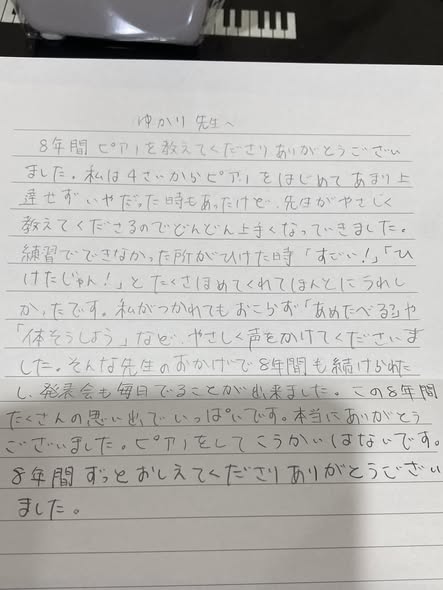 ゆかり先生へ
8年間ピアノを教えてくださりありがとうござい
ました。私は4さいからピアノをはじめてあまり上
達せずいやだった時もあったけど、先生がやさしく
教えてくださるのでどんどん上手くなっていきました。
練習でできなかった所がひけた時「すごい!」「ひ
けたじゃん!」とたくさほめてくれてほんとにうれし
かったです。私がつかれてもおこらず「あめたべる?」や
「体そうしよう」などやさしく声をかけてくださいま
した。そんな先生のおかげで8年間も続けられた
し、発表会も毎日でることが出来ました。この8年間
たくさんの思い出でいっぱいです。本当にありがとう
ございました。ピアノをしてこうかいはないです。
8年間ずっとおしえてくださりありがとうござい
ました。